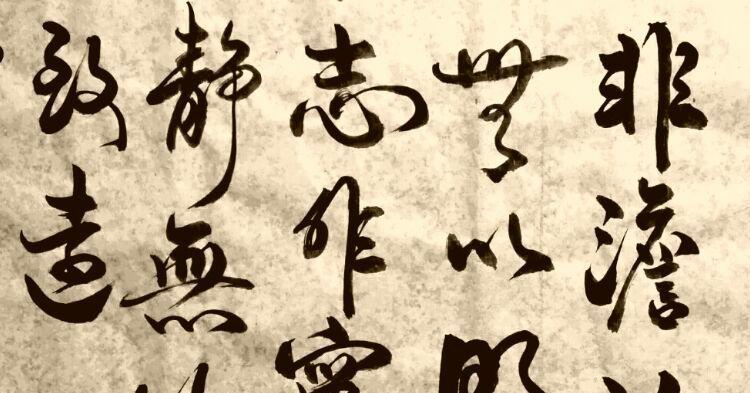 非澹
無以明
志非寧
静無
致遠